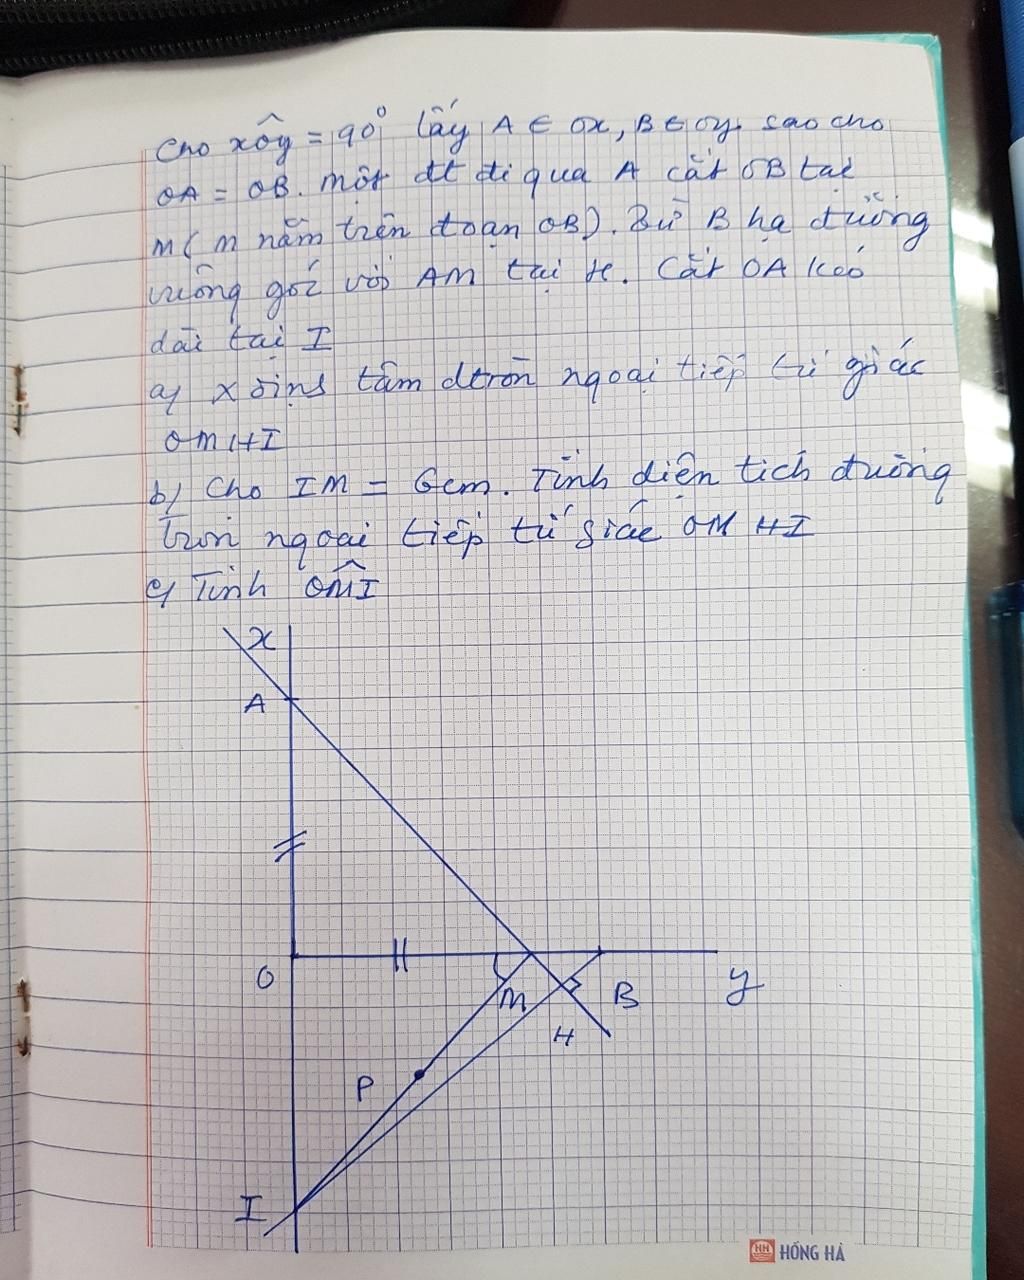 Cho xôy = 90° lấy A ∈ ox, B ∈ oy. sao cho
OA = OB. một đt đi qua A cắt OB tại
M ( M nằm trên đoạn OB). Từ B hạ đường
vuông góc với AM tại H. Cắt OA kéo
dài tại I
a/ Xđịnh tâm đtròn ngoại tiếp tứ giác
OMHI
b/ Cho IM = 6cm. Tính diện tích đường
tròn ngoại tiếp tứ giác OMHI
c/ Tính OMI
x
A
O
M
B
y
H
P
I
HH HỒNG HÀ